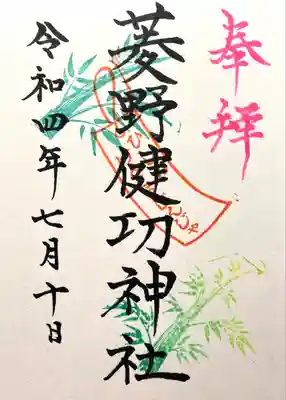 奉拝
菱野健功神社
令和四年七月十日